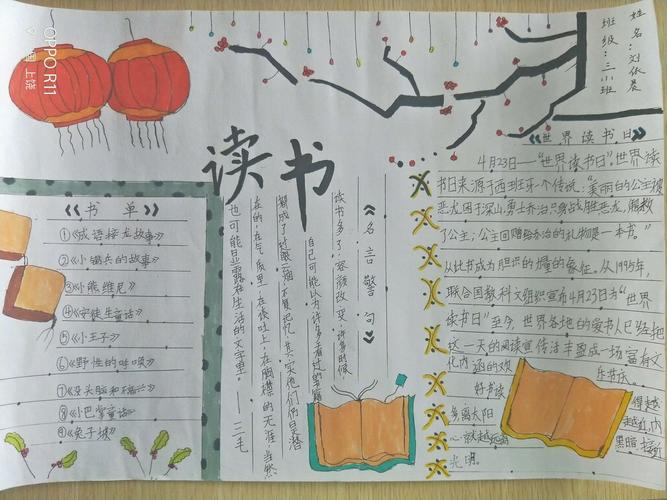 OPPO R11
上饶
姓名：刘依晨
班级：三小班
读书
《书单》
①《成语接龙故事》
②《小锡兵的故事》
③《小熊维尼》
④《安徒生童话》
⑤《小王子》
⑥《野性的呼唤》
⑦《没头脑和不高兴》
⑧《小巴掌童话》
⑨《兔子坡》
《名言警句》
读书多了，容颜改变，许多时候
自己可能以为许多看过的书籍
都成了过眼云烟，不复记忆，其实他们仍是潜
在的，在气质里，在谈吐上，在胸襟的无涯，当然
也可能显露在生活的文字里。——三毛
《世界读书日》
4月23日——“世界读书日”。世界读
书日来源于西班牙一个传说：“美丽的公主被
恶龙困于深山，勇士乔治只身战胜恶龙，解救
了公主；公主回赠给乔治的礼物是一本书。”
从此书成为胆识和力量的象征。从1995年，
联合国教科文组织宣布4月23日为“世界
读书日”至今，世界各地的爱书人已经把
这一天的阅读宣传活丰盈成一场富有文
化内涵的欢
乐节庆。
好书读
得越
多离太阳
越近，内
心就越远离
黑暗，接近
光明。